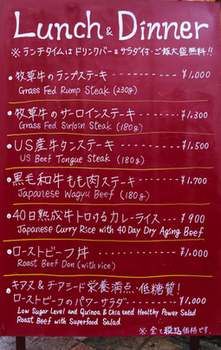 Lunch & Dinner
※ランチタイムはドリンクバー&サラダ付・ご飯大盛無料!!
・牧草牛のランプステーキ ¥1,000
Grass Fed Rump Steak (230g)
・牧草牛のサーロインステーキ ¥1,300
Grass Fed Sirloin Steak (180g)
・US産牛タンステーキ ¥1,500
US Beef Tongue Steak (180g)
・黒毛和牛もも肉ステーキ ¥1,700
Japanese Wagyu Beef (180g)
・40日熟成牛トロけるカレーライス ¥900
Japanese Curry Rice with 40 Day Dry Aging Beef
・ローストビーフ丼 ¥1,000
Roast Beef Don (with rice)
・キヌア&チアシード 栄養満点・低糖質!
ローストビーフのパワーサラダ ¥1,000
Low Sugar Level and Quinoa & Chia seed Healthy Power Salad
Roast Beef with Superfood Salad
※全て税込価格です